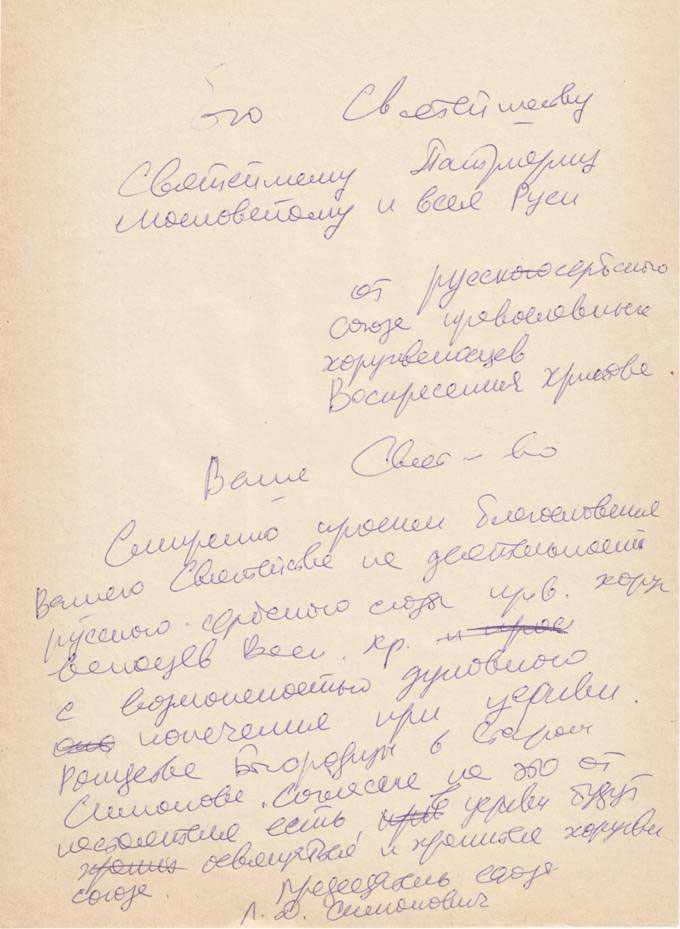 Его Святейшеству
Святейшему Патриарху
Московскому и всея Руси
от русскогосербского
союза православных
хоругвеносцев
Воскресения Христова.
Ваше Свят-во
Смиренно просим благословения
Вашего Святейства на деятельность
русского-сербского союза прав. хоруг
веносцев Воск. Хр. и прос
с возможностью духовного
попечения при церкви.
Рождества Богородицы в Старом
Симонове. Согласие на это от
настоятеля есть, в церкви будут
освящаться и храниться хоругви
союза. Председатель союза
Л. Д. Симонович